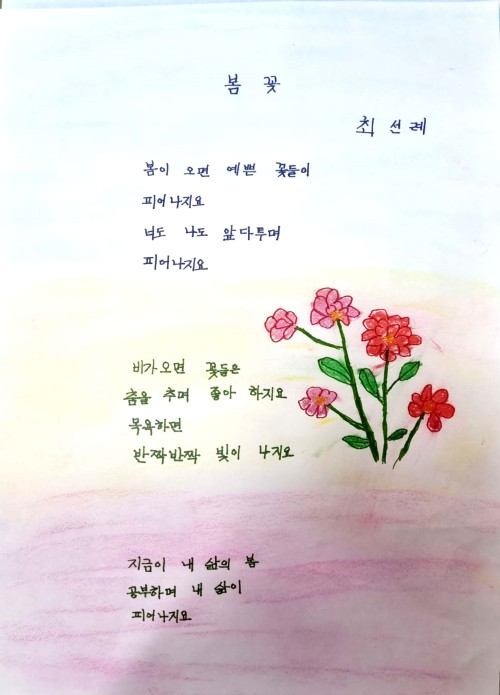 봄 꽃
최 선 례
봄이 오면 예쁜 꽃들이
피어나지요
너도 나도 앞다투며
피어나지요
비가오면 꽃들은
춤을 추며 좋아 하지요
목욕하면
반짝반짝 빛이 나지요
지금이 내 삶의 봄
공부하며 내 삶이
피어나지요